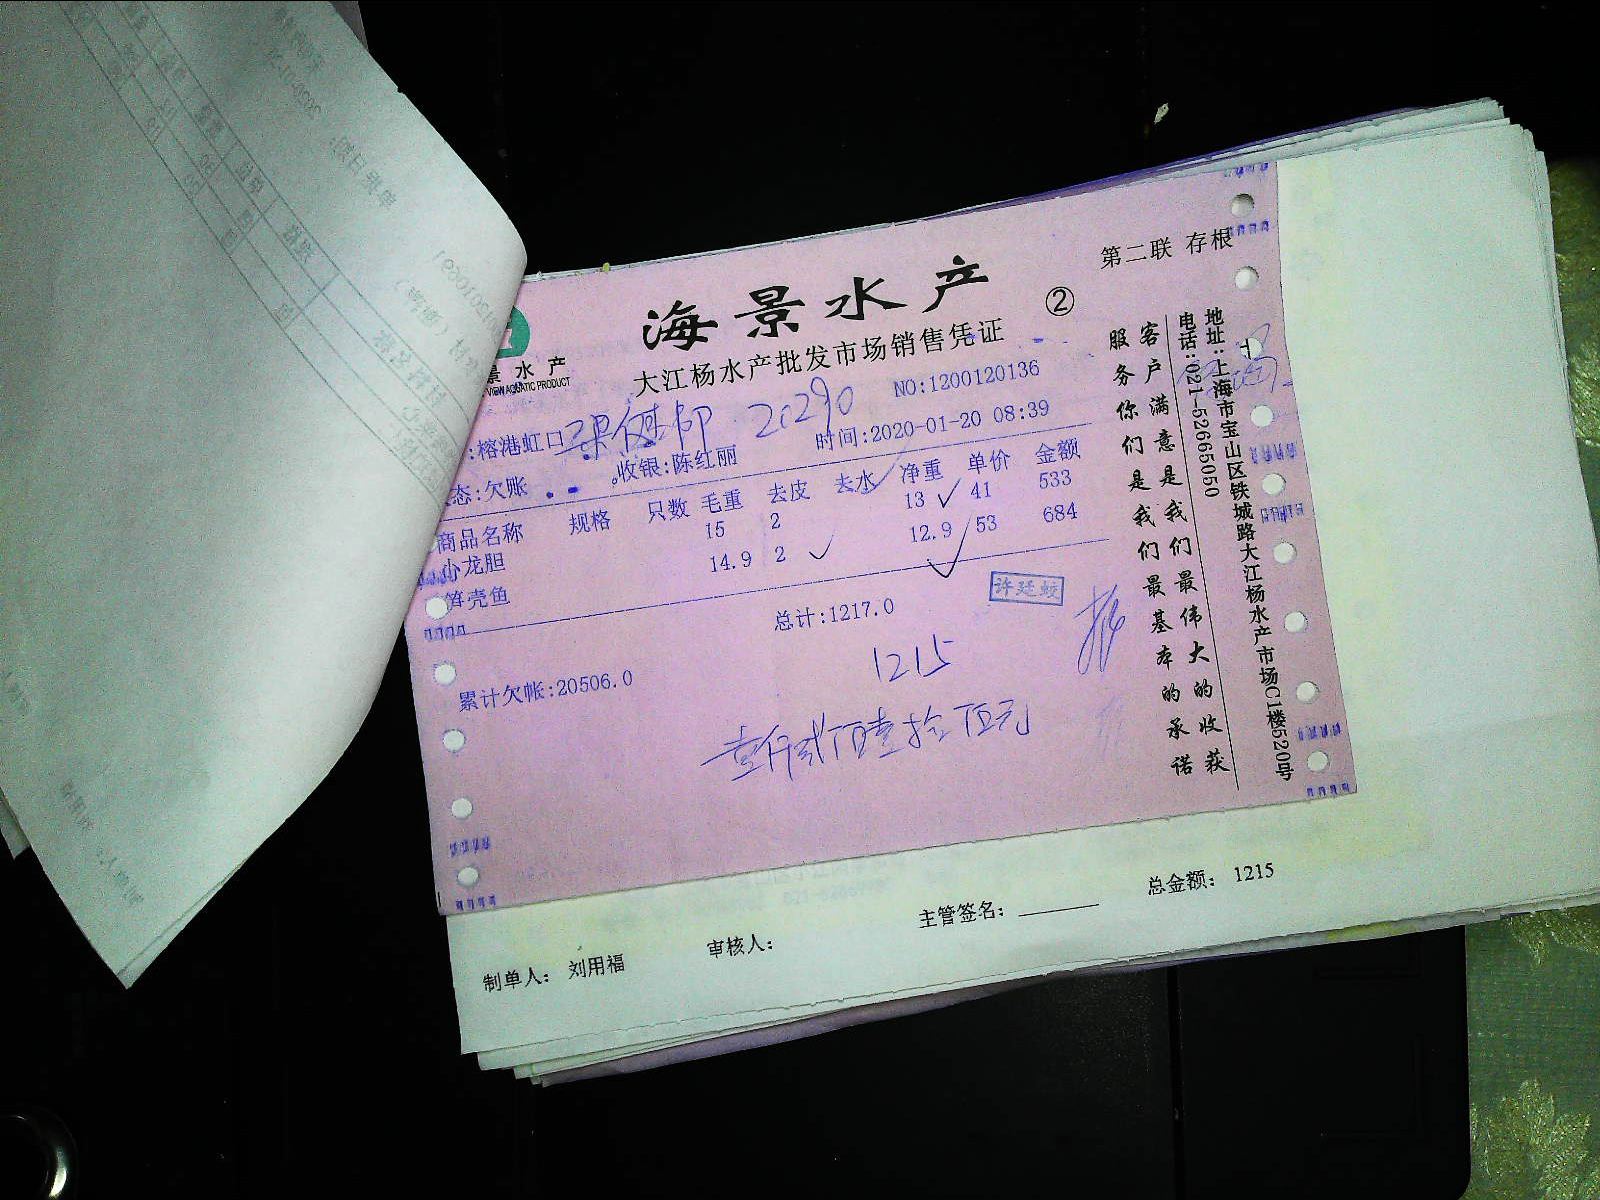 第二联 存根
海景水产
②
大江杨水产批发市场销售凭证
景水产
VIEW AQUATIC PRODUCT
NO:1200120136
:榕港虹口
时间:2020-01-20 08:39
态:欠账 收银:陈红丽
商品名称 规格 只数 毛重 去皮 去水 净重 单价 金额
小龙胆 15 2 13 41 533
笋壳鱼 14.9 2 12.9 53 684
总计:1217.0
许廷蛟
累计欠帐:20506.0
1215
壹仟贰佰壹拾伍元
客户满意是我们最伟大的收获
服务你们是我们最基本的承诺
地址:上海市宝山区铁城路大江杨水产市场C1楼520号
电话:021-52665050
总金额: 1215
制单人: 刘用福 审核人: 主管签名: